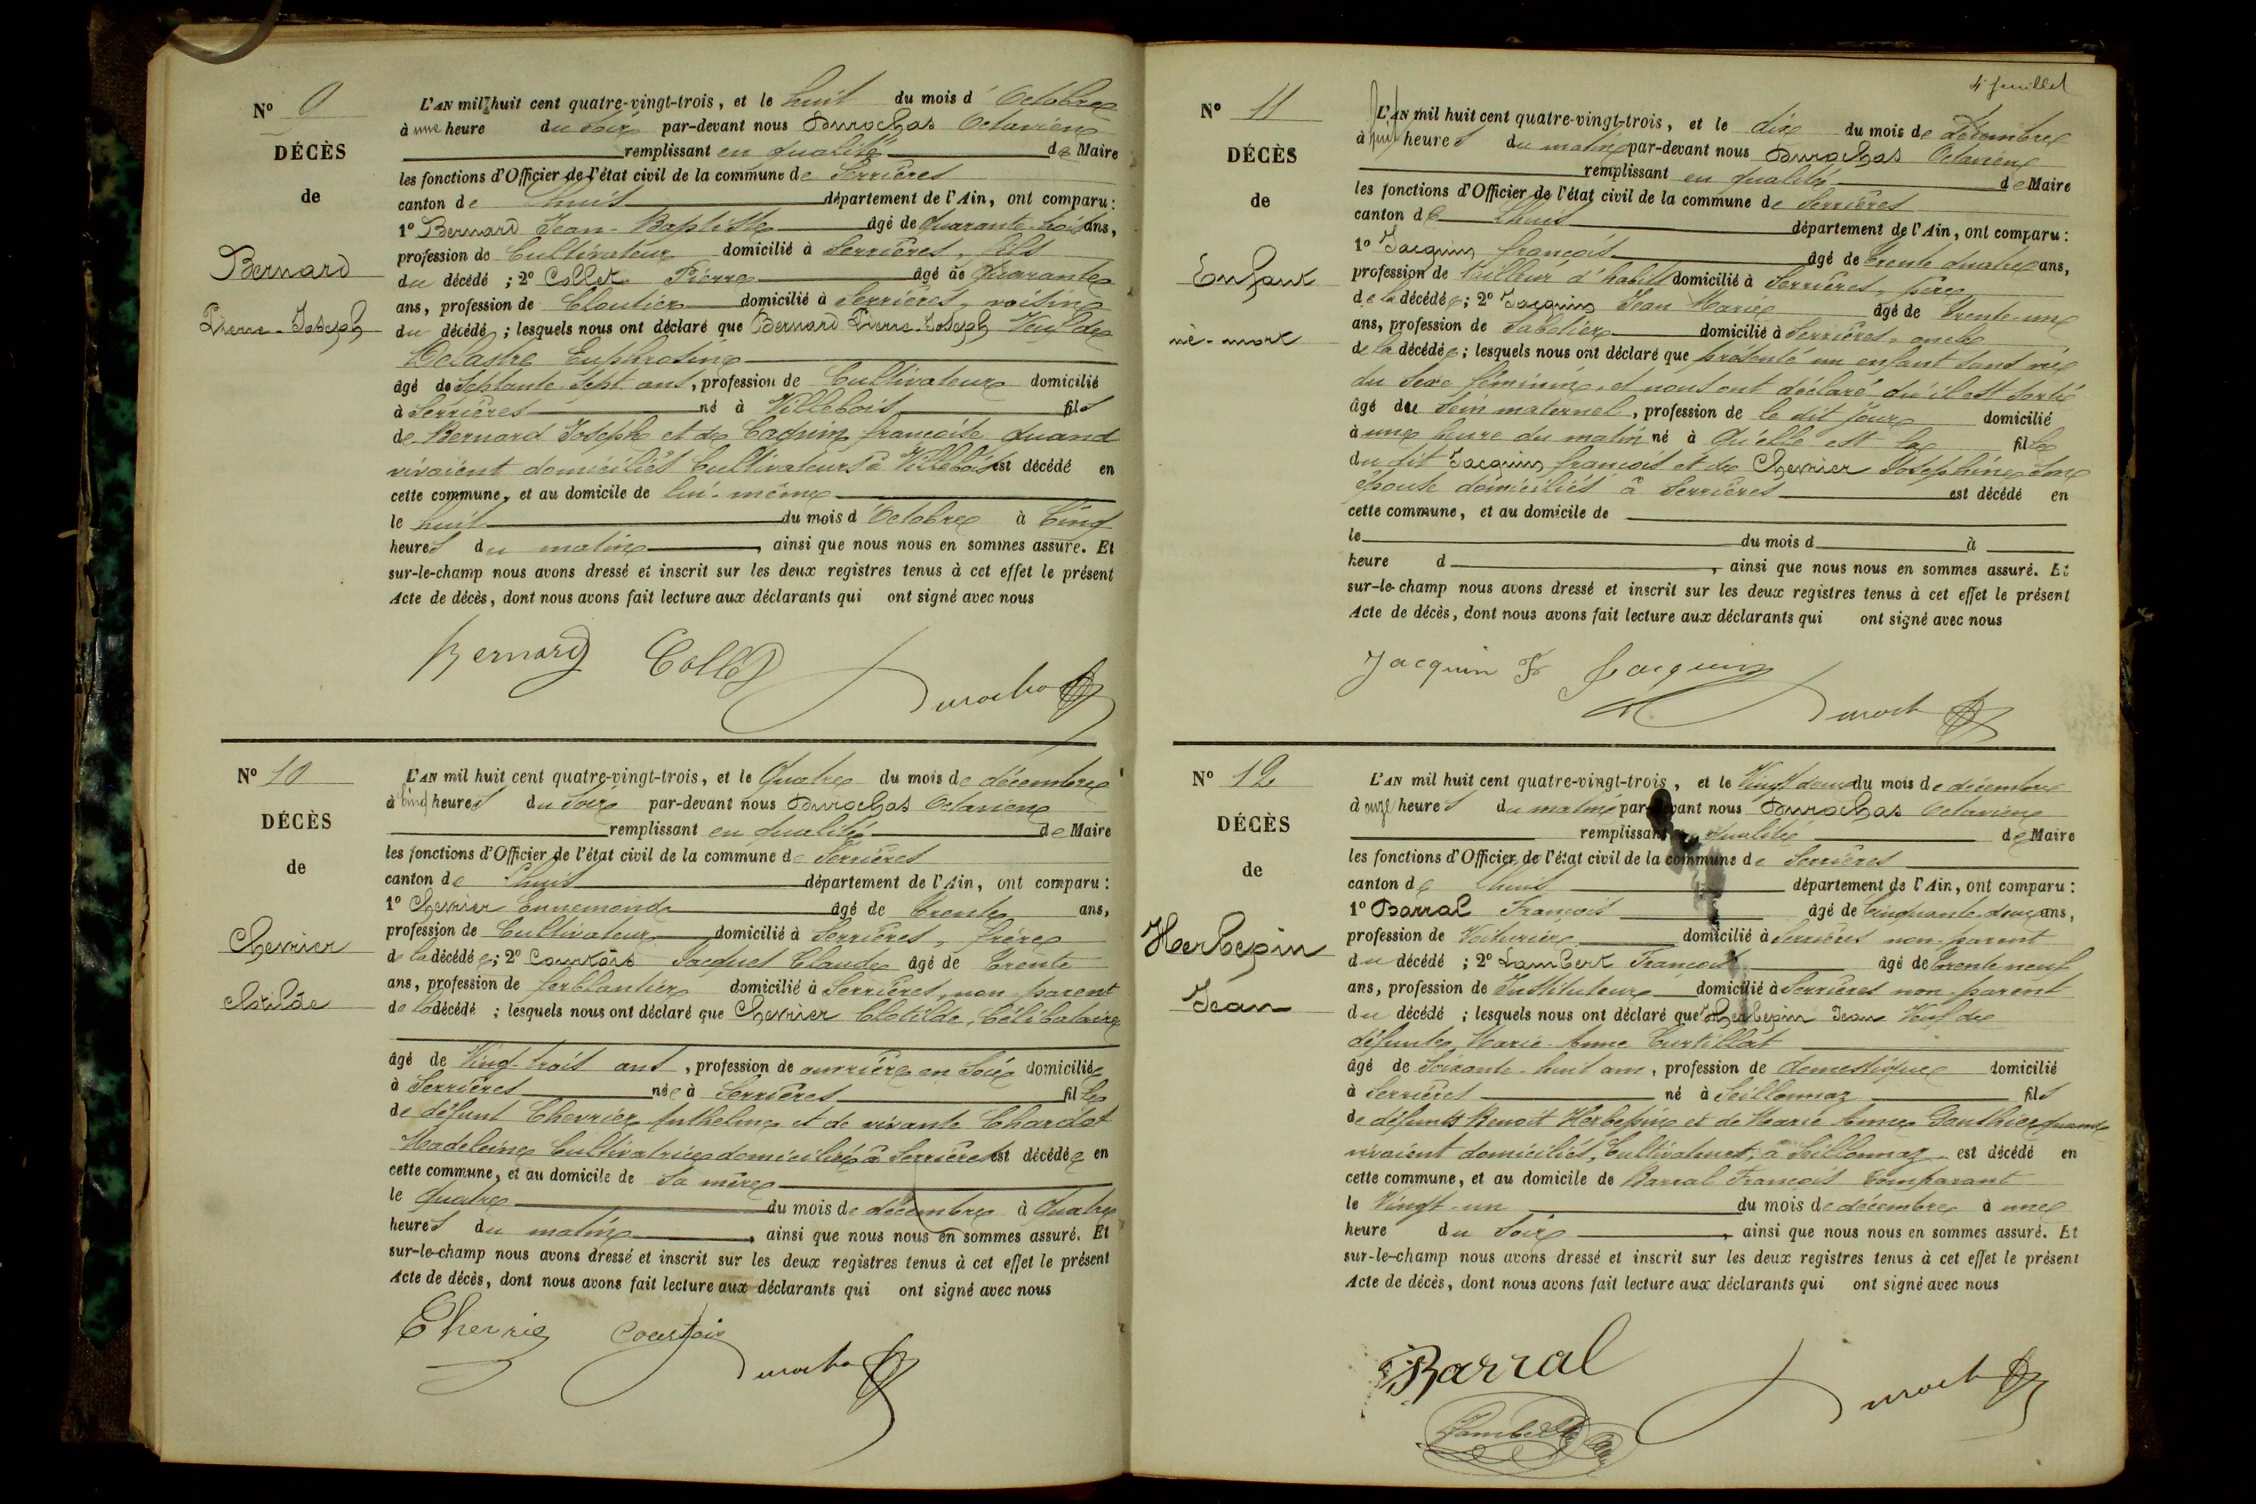 N° 9
DÉCÈS
de
Bernard
Pierre-Joseph
L'AN mil huit cent quatre-vingt-trois, et le huit du mois d'Octobre
à une heure du soir par-devant nous Durochas Octavien
remplissant en qualité de Maire
les fonctions d'Officier de l'état civil de la commune de Serrières
canton de Lhuis département de l'Ain, ont comparu:
1° Bernard Jean-Baptiste âgé de quarante trois ans,
profession de Cultivateur domicilié à Serrières, fils
du décédé; 2° Collet Pierre âgé de quarante
ans, profession de Cloutier domicilié à Serrières, voisin
du décédé; lesquels nous ont déclaré que Bernard Pierre-Joseph Veuf de
Euphrosine
âgé de septante sept ans, profession de Cultivateur domicilié
à Serrières né à Villebois fils
de Bernard Joseph et de françoise quand
vivaient domiciliés Cultivateurs à Villebois est décédé en
cette commune, et au domicile de lui-même
le huit du mois d'Octobre à Cinq
heures du matin, ainsi que nous nous en sommes assuré. Et
sur-le-champ nous avons dressé et inscrit sur les deux registres tenus à cet effet le présent
Acte de décès, dont nous avons fait lecture aux déclarants qui ont signé avec nous
Bernard Collet Durochas
N° 10
DÉCÈS
de
Chevrier
Clotilde
L'AN mil huit cent quatre-vingt-trois, et le Quatre du mois de décembre
à cinq heures du soir par-devant nous Durochas Octavien
remplissant en qualité de Maire
les fonctions d'Officier de l'état civil de la commune de Serrières
canton de Lhuis département de l'Ain, ont comparu:
1° Chevrier Ennemond âgé de Trente ans,
profession de Cultivateur domicilié à Serrières, frère
de la décédée; 2° Courtois Jacques Claude âgé de Trente
ans, profession de ferblantier domicilié à Serrières, non parent
de la décédé; lesquels nous ont déclaré que Chevrier Clotilde, Célibataire
âgé de Vingt-trois ans, profession de ouvrière en Soie domiciliée
à Serrières née à Serrières fille
de défunt Chevrier Anthelme et de vivante Chardot
Madeleine Cultivatrice domiciliée à Serrières est décédée en
cette commune, et au domicile de sa mère
le quatre du mois de décembre à Quatre
heures du matin, ainsi que nous nous en sommes assuré. Et
sur-le-champ nous avons dressé et inscrit sur les deux registres tenus à cet effet le présent
Acte de décès, dont nous avons fait lecture aux déclarants qui ont signé avec nous
Chevrier Courtois Durochas
4e feuillet
N° 11
DÉCÈS
de
Enfant
né-mort
L'AN mil huit cent quatre-vingt-trois, et le dix du mois de Décembre
à heures du matin par-devant nous Durochas Octavien
remplissant en qualité de Maire
les fonctions d'Officier de l'état civil de la commune de Serrières
canton de Lhuis département de l'Ain, ont comparu:
1° Jacquin françois âgé de trente quatre ans,
profession de tailleur d'habits domicilié à Serrières, père
de la décédée; 2° Jacquin Jean Marie âgé de Trente-un
ans, profession de Sabotier domicilié à Serrières, oncle
de la décédée; lesquels nous ont déclaré que présenté un enfant sans vie
du sexe féminin, et nous ont déclaré qu'il est sorti
âgé du sein maternel, profession de le dit jour domicilié
à une heure du matin né à Qu'elle est la fille
du dit Jacquin françois et de Chevrier Joséphine son
épouse domiciliés à Serrières est décédé en
cette commune, et au domicile de
le du mois d à
heure d, ainsi que nous nous en sommes assuré. Et
sur-le-champ nous avons dressé et inscrit sur les deux registres tenus à cet effet le présent
Acte de décès, dont nous avons fait lecture aux déclarants qui ont signé avec nous
Jacquin F Jacquin Durochas
N° 12
DÉCÈS
de
Herbepin
Jean
L'AN mil huit cent quatre-vingt-trois, et le Vingt deux du mois de décembre
à onze heures du matin par-devant nous Durochas Octavien
remplissant en qualité de Maire
les fonctions d'Officier de l'état civil de la commune de Serrières
canton de Lhuis département de l'Ain, ont comparu:
1° Barral François âgé de Cinquante-deux ans,
profession de Voiturier domicilié à Serrières non parent
du décédé; 2° Lambert François âgé de Trente neuf
ans, profession de Instituteur domicilié à Serrières non parent
du décédé; lesquels nous ont déclaré que Herbepin Jean Veuf de
défunte Marie-Anne Curtillat
âgé de Soixante-huit ans, profession de domestique domicilié
à Serrières né à Seillonnaz fils
de défunts Benoit Herbepin et de Marie Anne Gauthier quand
vivaient domiciliés, Cultivateurs, à Seillonnaz, est décédé en
cette commune, et au domicile de Barral François Comparant
le Vingt-un du mois de décembre à une
heure du Soir, ainsi que nous nous en sommes assuré. Et
sur-le-champ nous avons dressé et inscrit sur les deux registres tenus à cet effet le présent
Acte de décès, dont nous avons fait lecture aux déclarants qui ont signé avec nous
Barral Durochas
Lambert